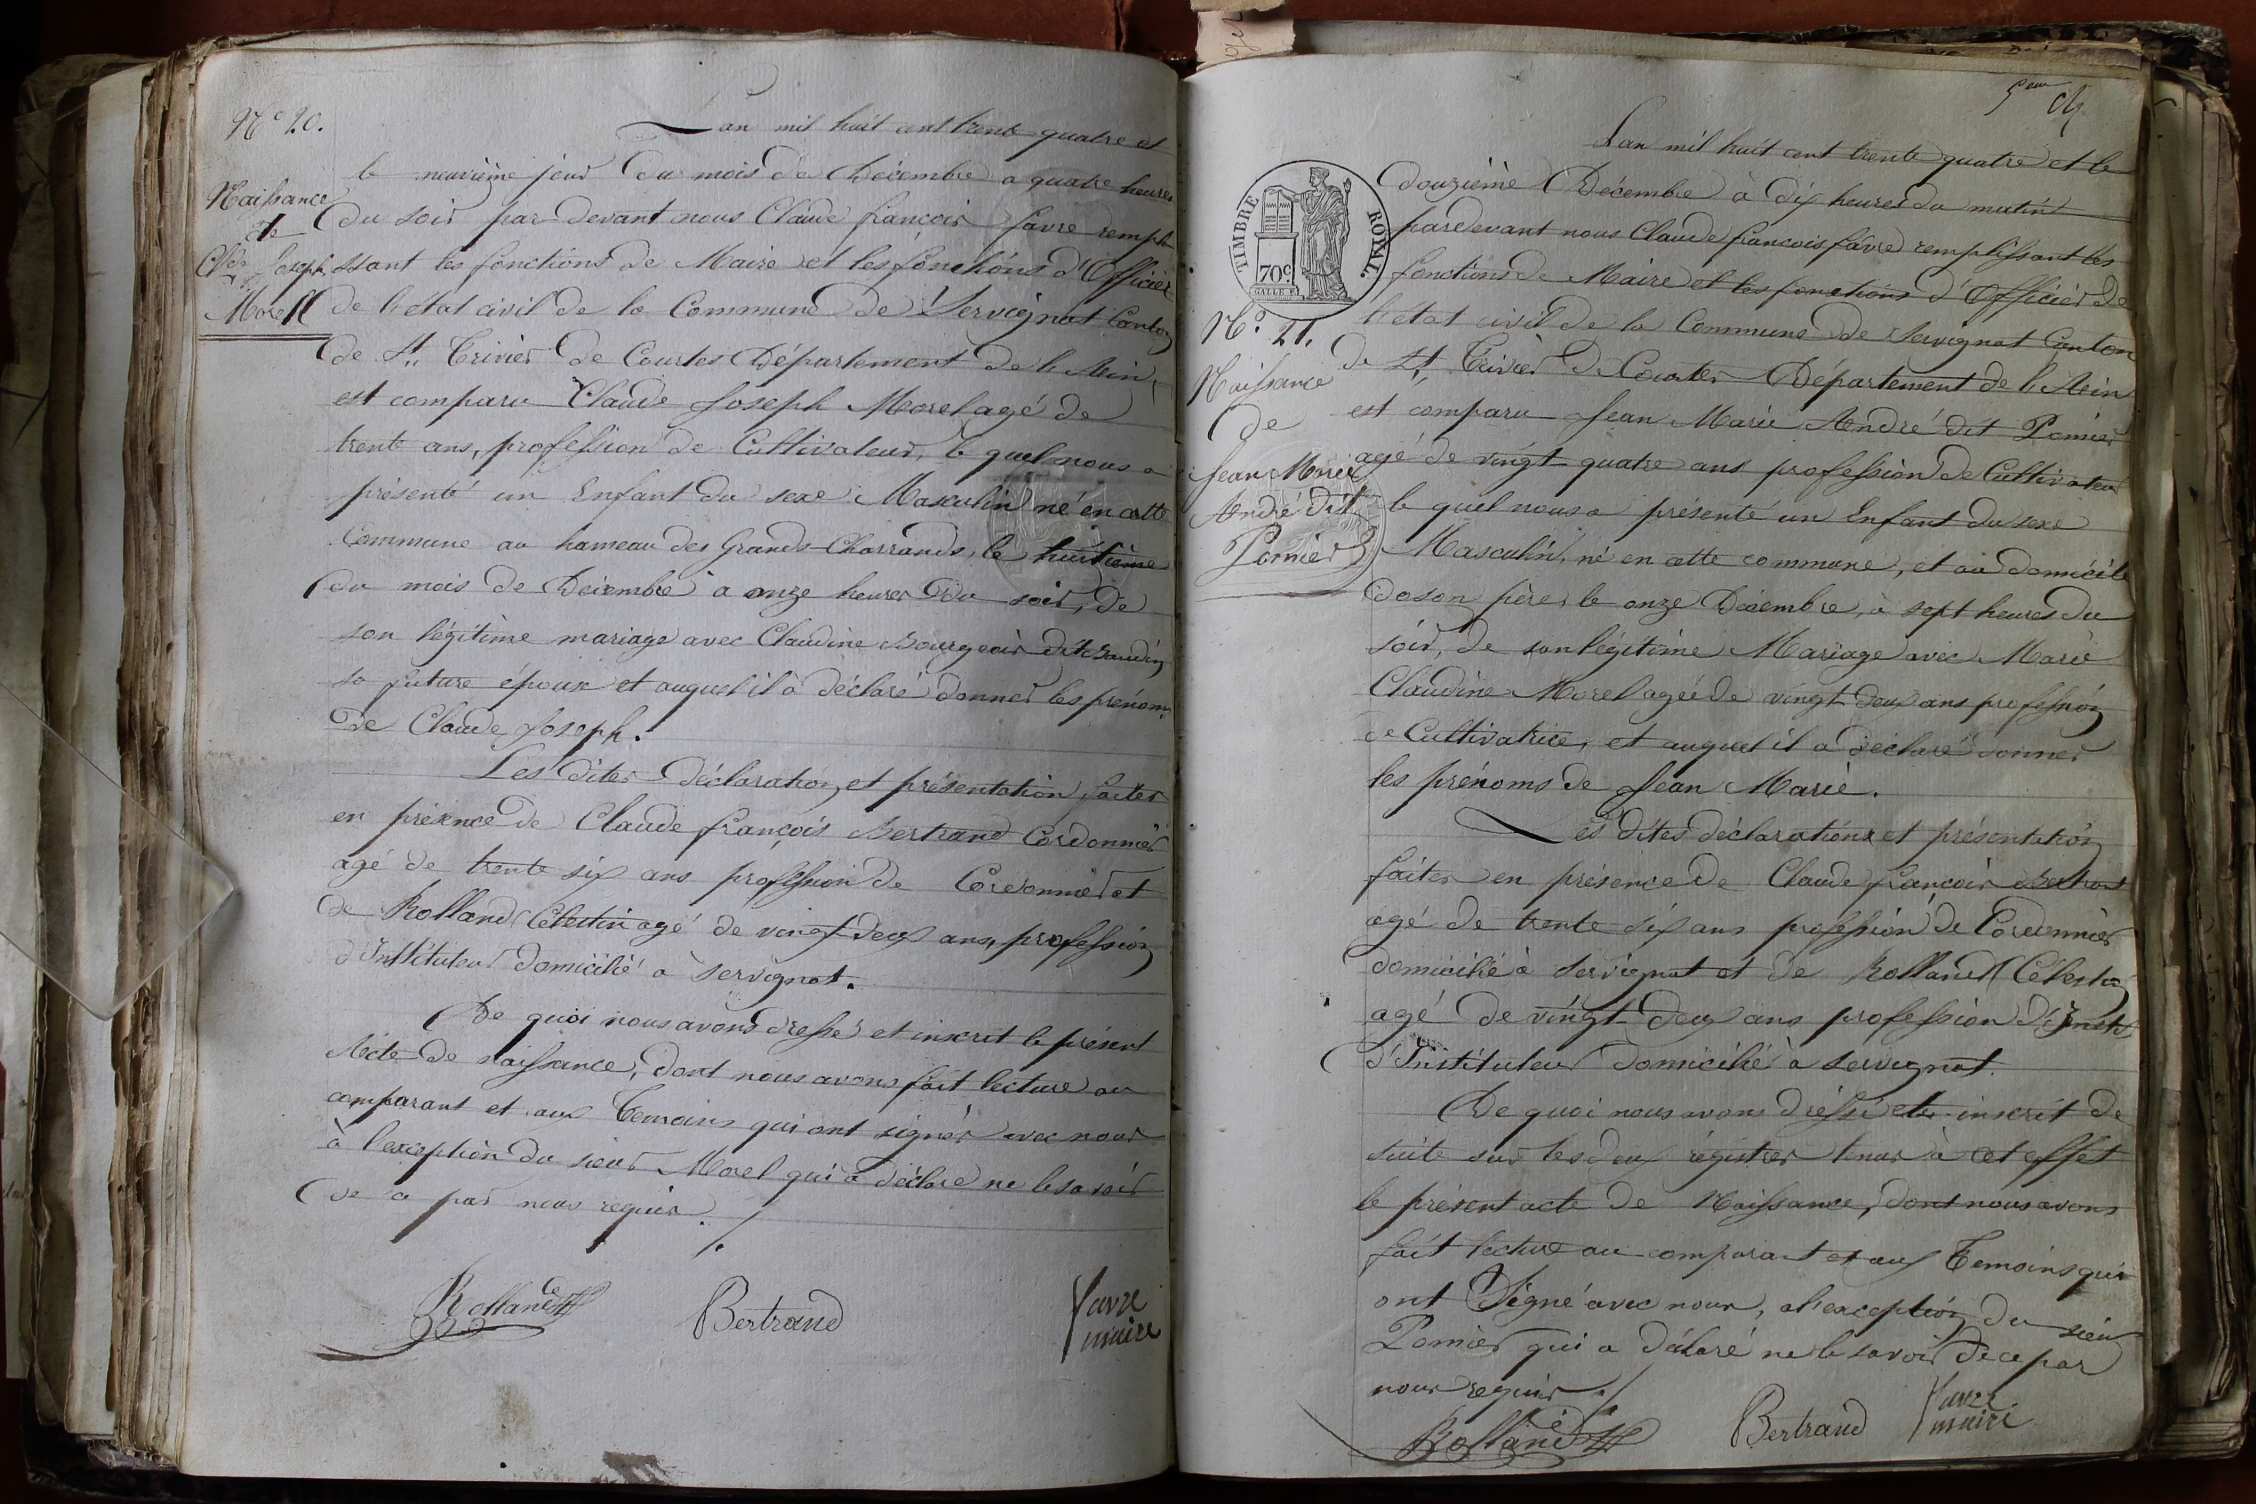 N° 20.
Naissance
de
Cde Joseph
Morel
L'an mil huit cent trente quatre et
le neuvième jour du mois de Décembre a quatre heures
du soir par-devant nous Claude françois favre rempli
ssant les fonctions de Maire et les fonctions d'Officier
de l'état civil de la Commune de Servignat Canton
de St Trivier de Courtes Département de l'Ain,
est comparu Claude Joseph Morel agé de
trente ans, profession de Cultivateur, le quel nous a
présenté un Enfant du sexe Masculin né en cette
Commune au hameau des Grands Charrands, le huitième
du mois de Décembre à onze heures du soir, de
son légitime mariage avec Claudine Bourgeois dit Gaudin
sa future épouse et auquel il a déclaré donner les prénoms
de Claude Joseph.
Les dites déclaration et présentation faites
en présence de Claude françois Bertrand Cordonnier
agé de trente six ans profession de Cordonnier et
de Rolland Célestin agé de vingt deux ans, profession
d'Instituteur domicilié à Servignat.
De quoi nous avons dressé et inscrit le présent
Acte de naissance, dont nous avons fait lecture au
comparant et aux Temoins qui ont signés avec nous
à l'exception du sieur Morel qui a déclaré ne le savoir
de ce par nous requis ./.
Rolland Bertrand favre
maire
TIMBRE ROYAL.
70c
GALLE F.
N° 21.
Naissance
de
Jean Marie
André dit
Pomier
L'an mil huit cent trente quatre et le
douzième Décembre à dix heures du matin
pardevant nous Claude françois favre remplissant les
fonctions de Maire et les fonctions d'Officier de
l'état civil de la Commune de Servignat Canton
de St Trivier de Courtes Département de l'Ain
est comparu Jean Marie André dit Pomier
agé de vingt quatre ans profession de Cultivateur
le quel nous a présenté un Enfant du sexe
Masculin, né en cette commune, et au domicile
de son père, le onze Décembre, à sept heures du
soir, de son légitime Mariage avec Marie
Claudine Morel agée de vingt deux ans profession
de Cultivatrice, et auquel il a déclaré donner
les prénoms de Jean Marie.
Les dites déclarations et présentation
faites en présence de Claude françois Bertrand
agé de trente six ans profession de Cordonnier
domicilié à Servignat et de Rolland Célestin
agé de vingt deux ans profession
d'Instituteur domicilié à Servignat.
De quoi nous avons dressé et inscrit de
suite sur les deux régistres tenus à cet effet
le présent acte de Naissance, dont nous avons
fait lecture au comparant et aux Temoins qui
ont Signé avec nous, a l'exception du sieur
Pomier qui a déclaré ne le savoir de ce par
nous requis ./.
Rolland Bertrand favre
maire